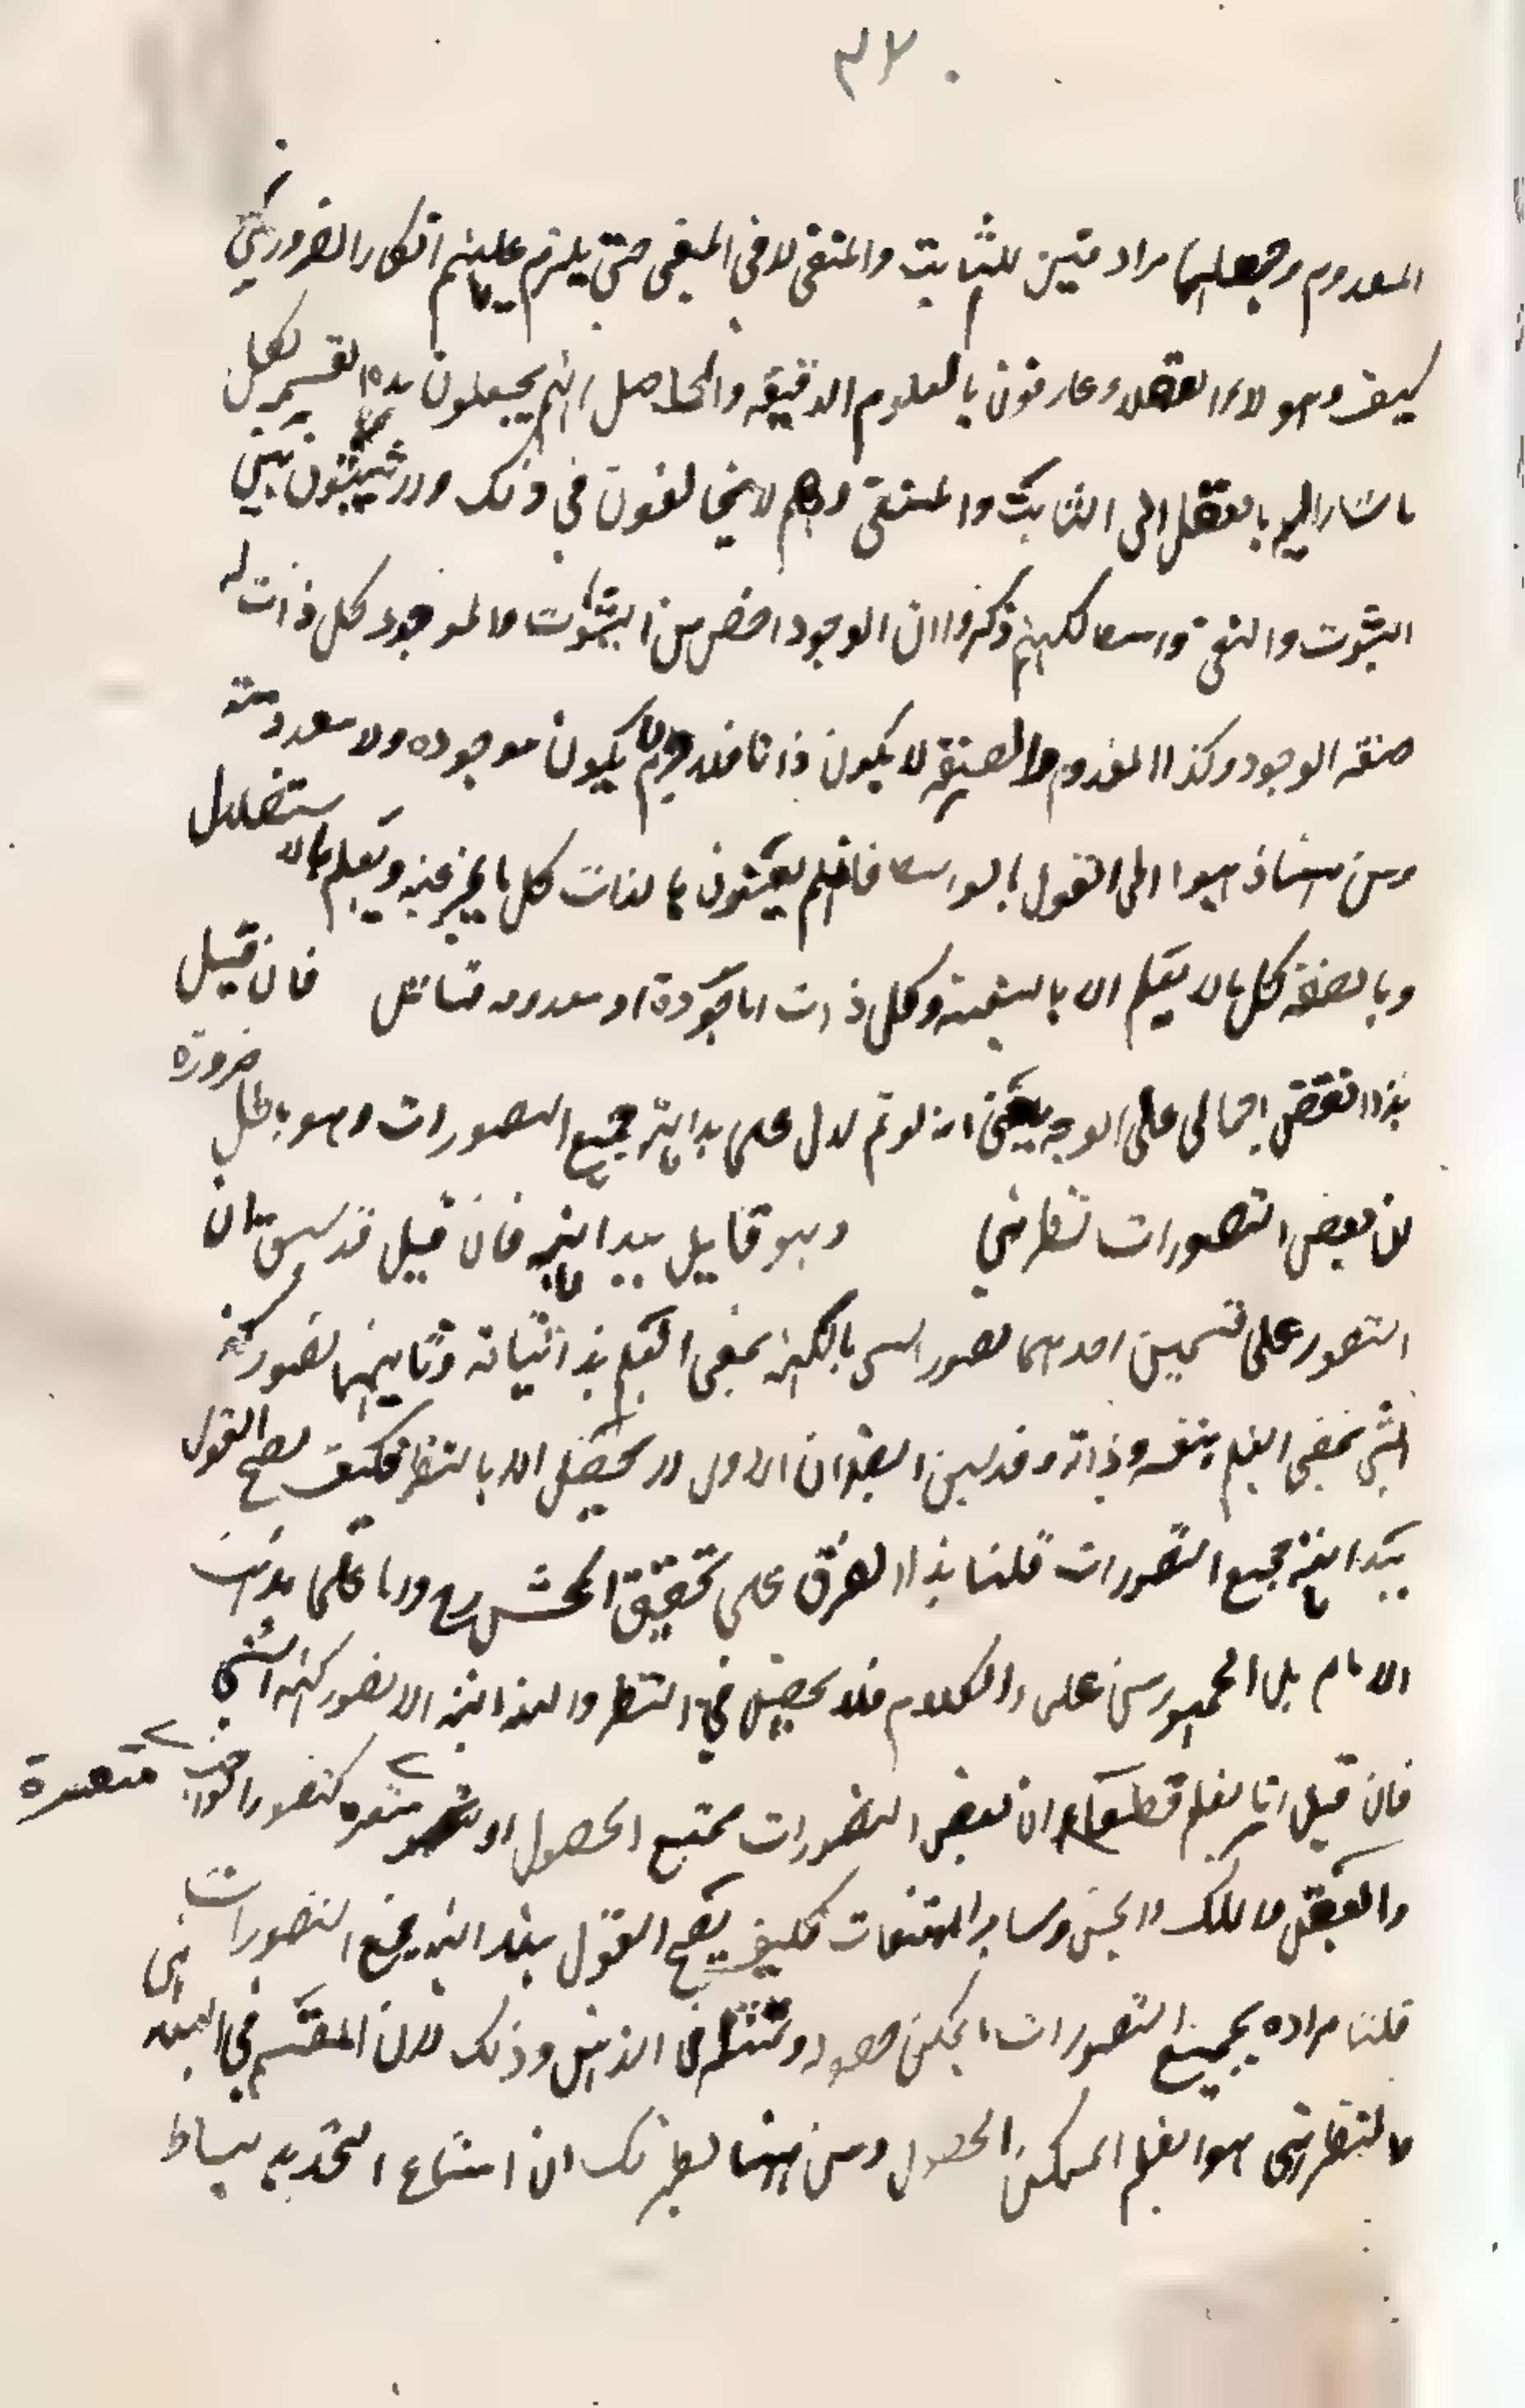 ٣٧٠
المعدوم وجعلهما مرادفتين للثابت والمنفى لا فى المبغى حتى يلزم عليهم انكار الضرورى
كيف وهولاء العقلاء عارفون بالعلوم الدقيقه والحاصل انهم يجعلون هذه القسيم لكل
ما يشار اليه بالعقل الى الثابت والمنفى وهم لا يخالفون فى ذلك ولا يثبتون بين
الثبوت والنفى واسطه لكنهم ذكروا ان الوجود اخص من الثبوت والموجود كل ذات له
صفة الوجود وكذا المعدوم والصفة لا يكون ذاتا فلا جرم لا يكون موجوده ولا معدومة
ومن هنا ذهبوا الى القول بالواسطه فانهم يعنون بالذات كل ما يخبر عنه ويعلم بالاستقلال
وبالصفة كل ما لا يعلم الا بالتبعية وكل ذات اما موجودة او معدومه فتامل فان قيل
هذا نقض اجمالى على الوجه يعنى انه لو تم لدل على بداهة جميع التصورات وهو باطل ضرورة
لان بعض التصورات نظرى وهو قايل ببداهته فان قيل قد سبق ان
التصور على قسمين احدهما تصور الشى بالكنه بمعنى العلم بذاتياته وثانيهما تصور كنه
الشى بمعنى العلم بنفسه وذاته وقد بين ايضا ان الاول لا يحصل الا بالنظر فكيف يصح القول
ببداهة جميع التصورات قلنا هذا الفرق على تحقيق المحشى رح واما على مذهب
الامام بل الجمهور من علماء الكلام فلا يحصل فى النظر والبداهة الا تصور كنه الشى
فان قيل انا نعلم قطعا ان بعض التصورات ممتنع الحصول او متعسرة كتصور الواجب
والعقل والملك والجن وساير الممتنعات فكيف يصح القول ببداهة جميع التصورات
قلنا مراده بجميع التصورات ما يمكن حصوله وتمثله فى الذهن وذلك لان المقسم فى البديهى
والنظرى هو العلم الممكن الحصول ومن ههنا يظهر لك ان امتناع التحديد بساط